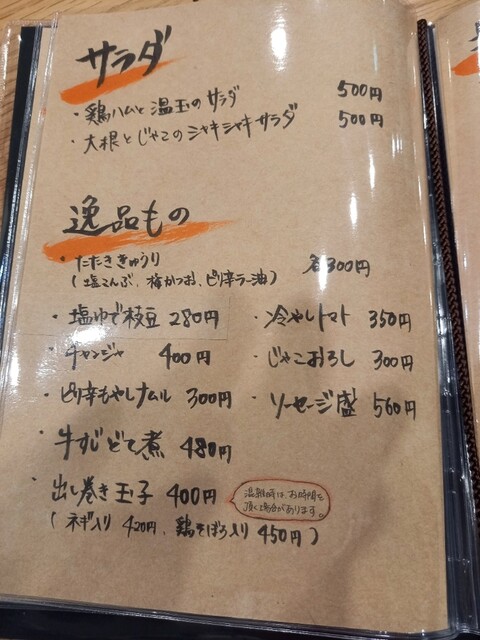 サラダ
・鶏ハムと温玉のサラダ 500円
・大根とじゃこのシャキシャキサラダ 500円
逸品もの
・たたききゅうり 各300円
(塩こんぶ、梅かつお、ピリ辛ラー油)
・塩ゆで枝豆 280円 ・冷やしトマト 350円
・チャンジャ 400円 ・じゃこおろし 300円
・ピリ辛もやしナムル 300円 ・ソーセージ盛 560円
・牛すじどて煮 480円
・出し巻き玉子 400円
混雑時は、お時間を
頂く場合があります。
(ネギ入り 420円、鶏そぼろ入り 450円)